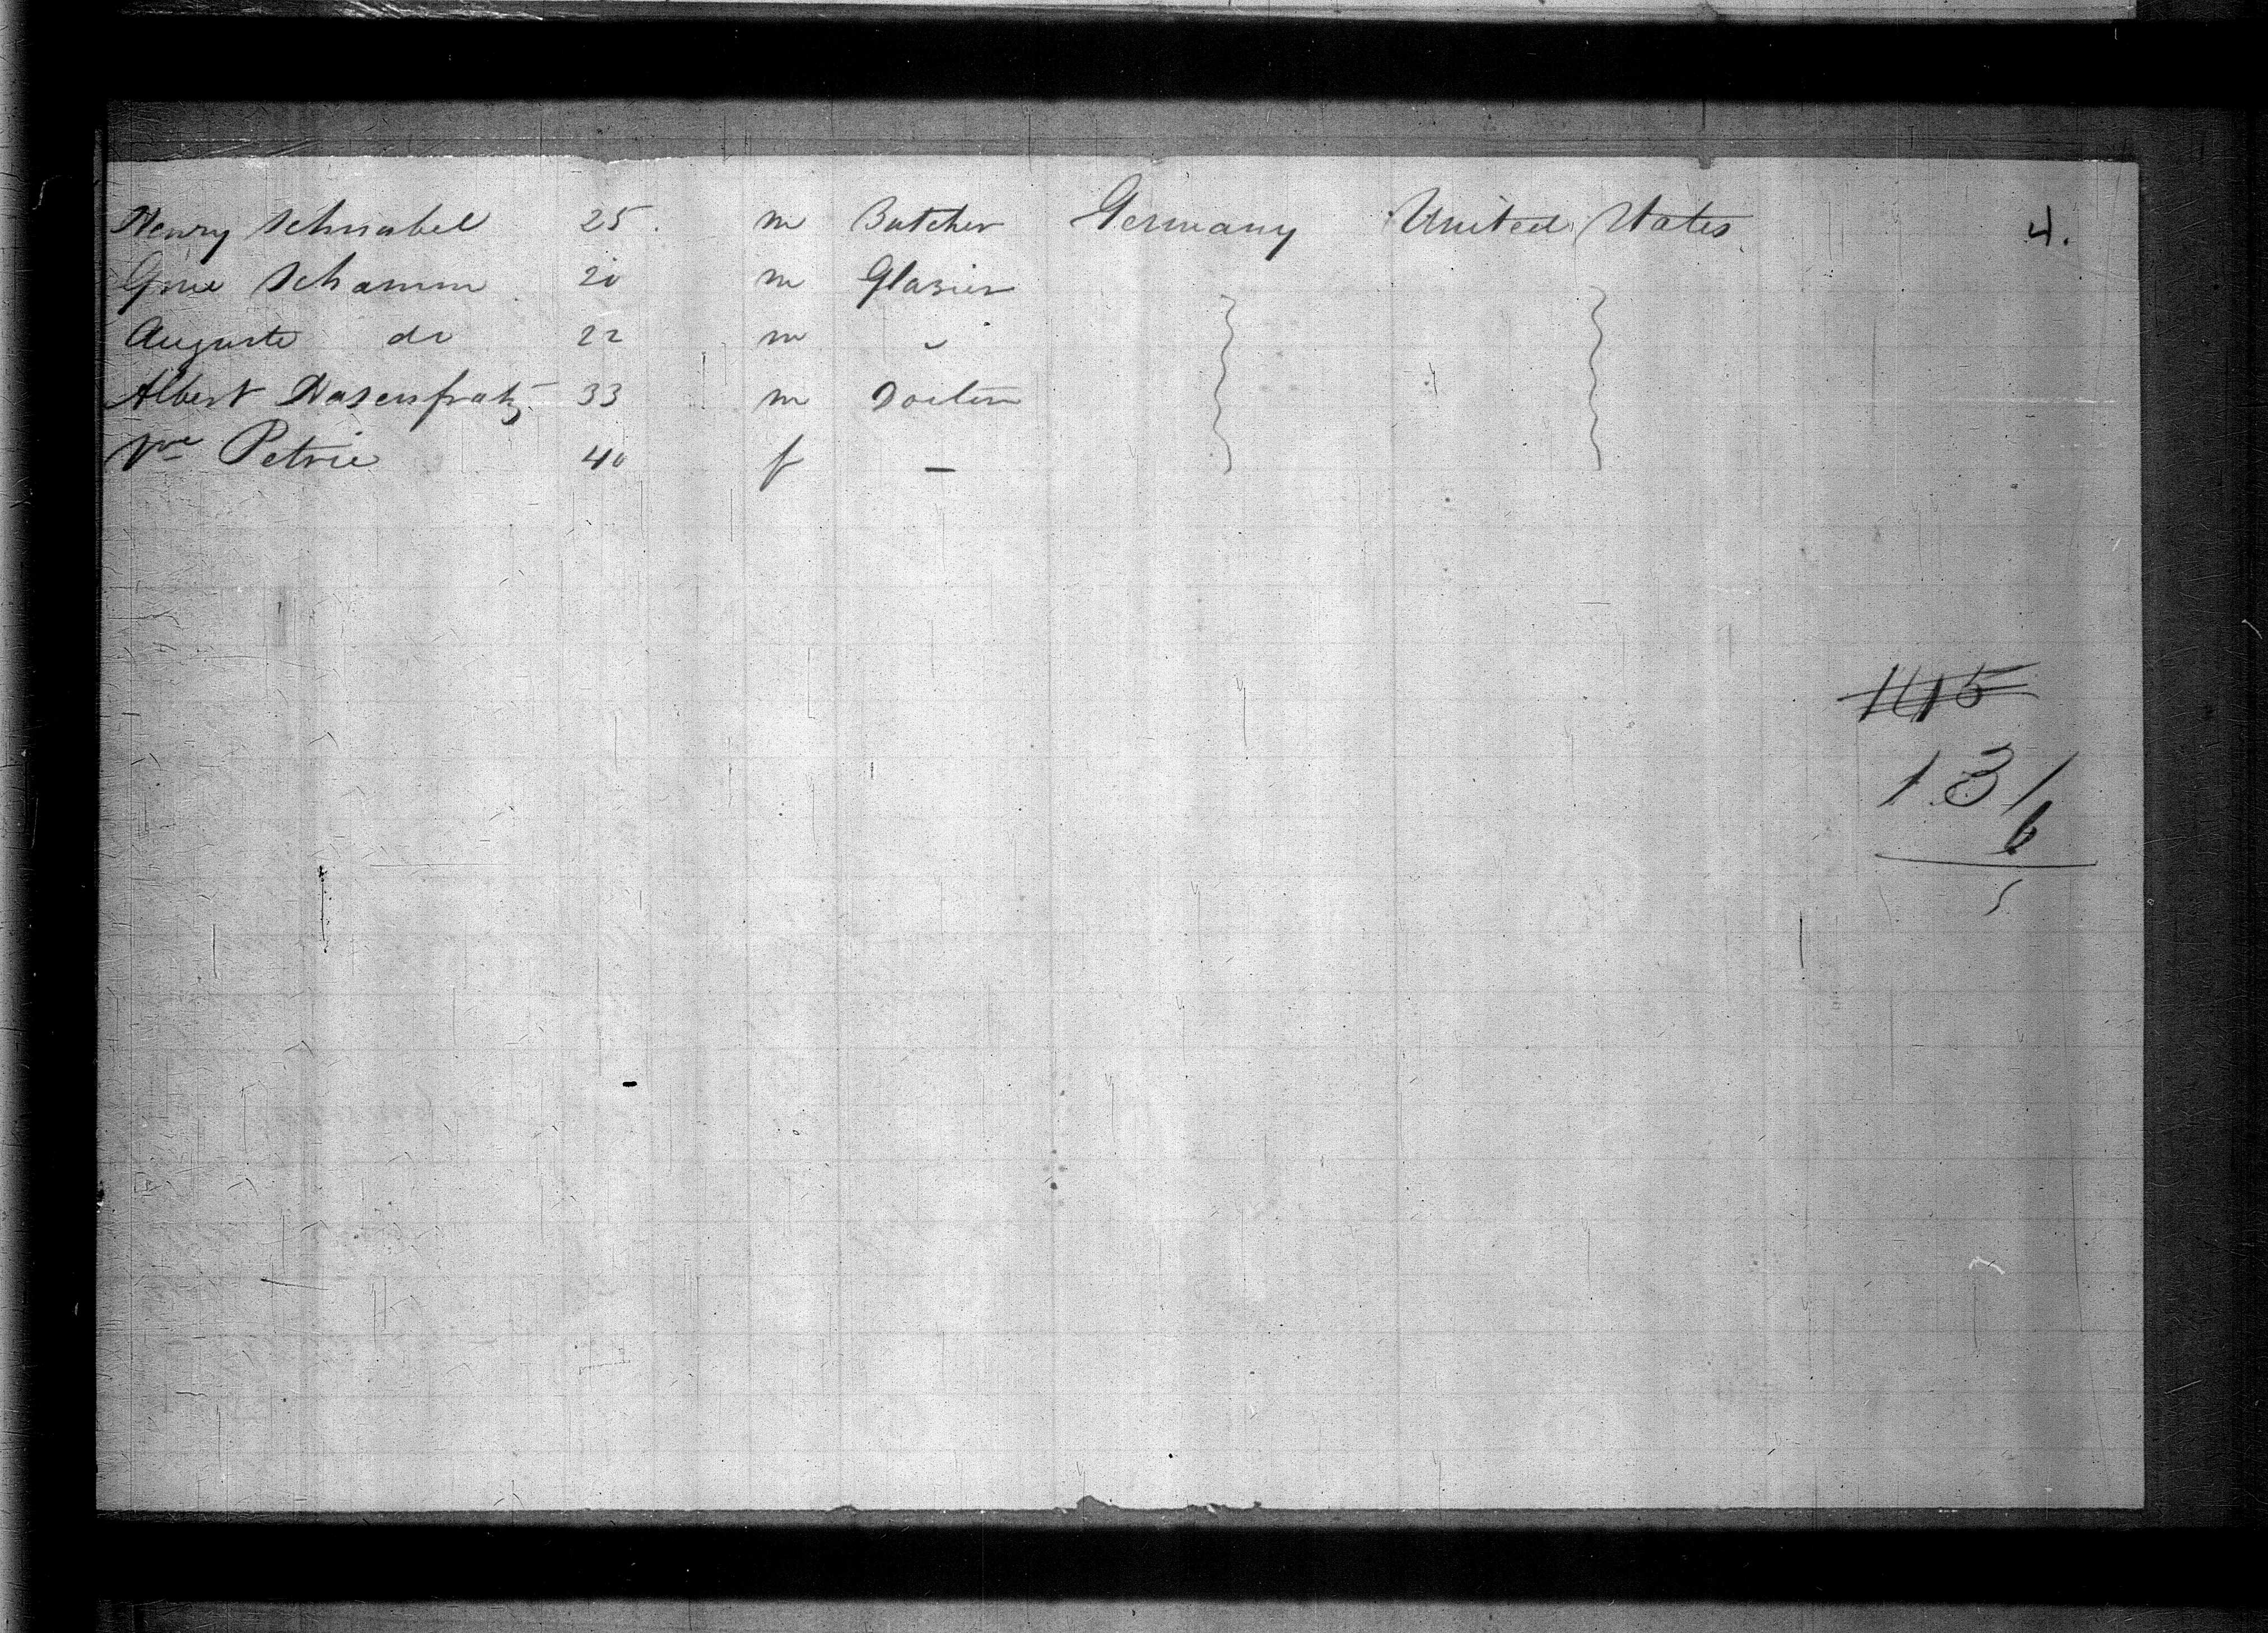 Henry Schnabel 25. m Butcher Germany United States 4.
Gme Schamm 20 m Glasier
Auguste do 22 m "
Albert Hasenfratz 33 m Doctor
Vve Petrie 40 f —
145
131
6